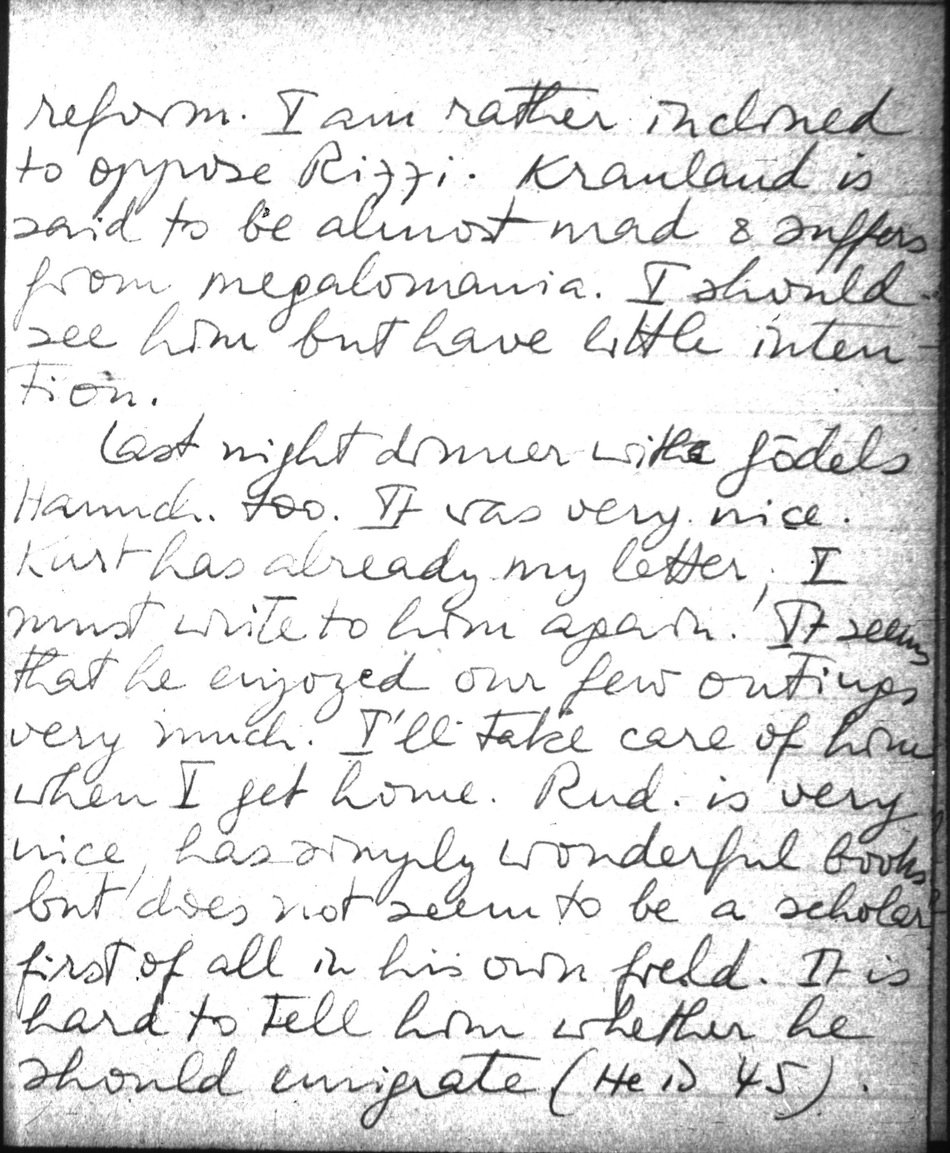 reform. I am rather inclined
to oppose Rizzi. Krauland is
said to be almost mad & suffers
from megalomania. I should
see him but have little inten-
tion.
Last night dinner with Gödels
Harmch. too. It was very nice.
Kurt has already my letter, I
must write to him again. It seems
that he enjoyed our few outings
very much. I'll take care of him
when I get home. Rud. is very
nice, has simply wonderful books
but does not seem to be a scholar
first of all in his own field. It is
hard to tell him whether he
should emigrate (He is 45).